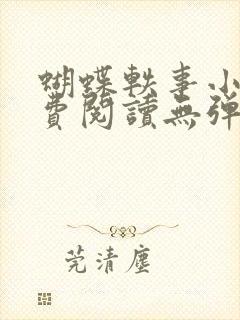 蝴蝶軼事小
費閱讀無彈
莞清塵